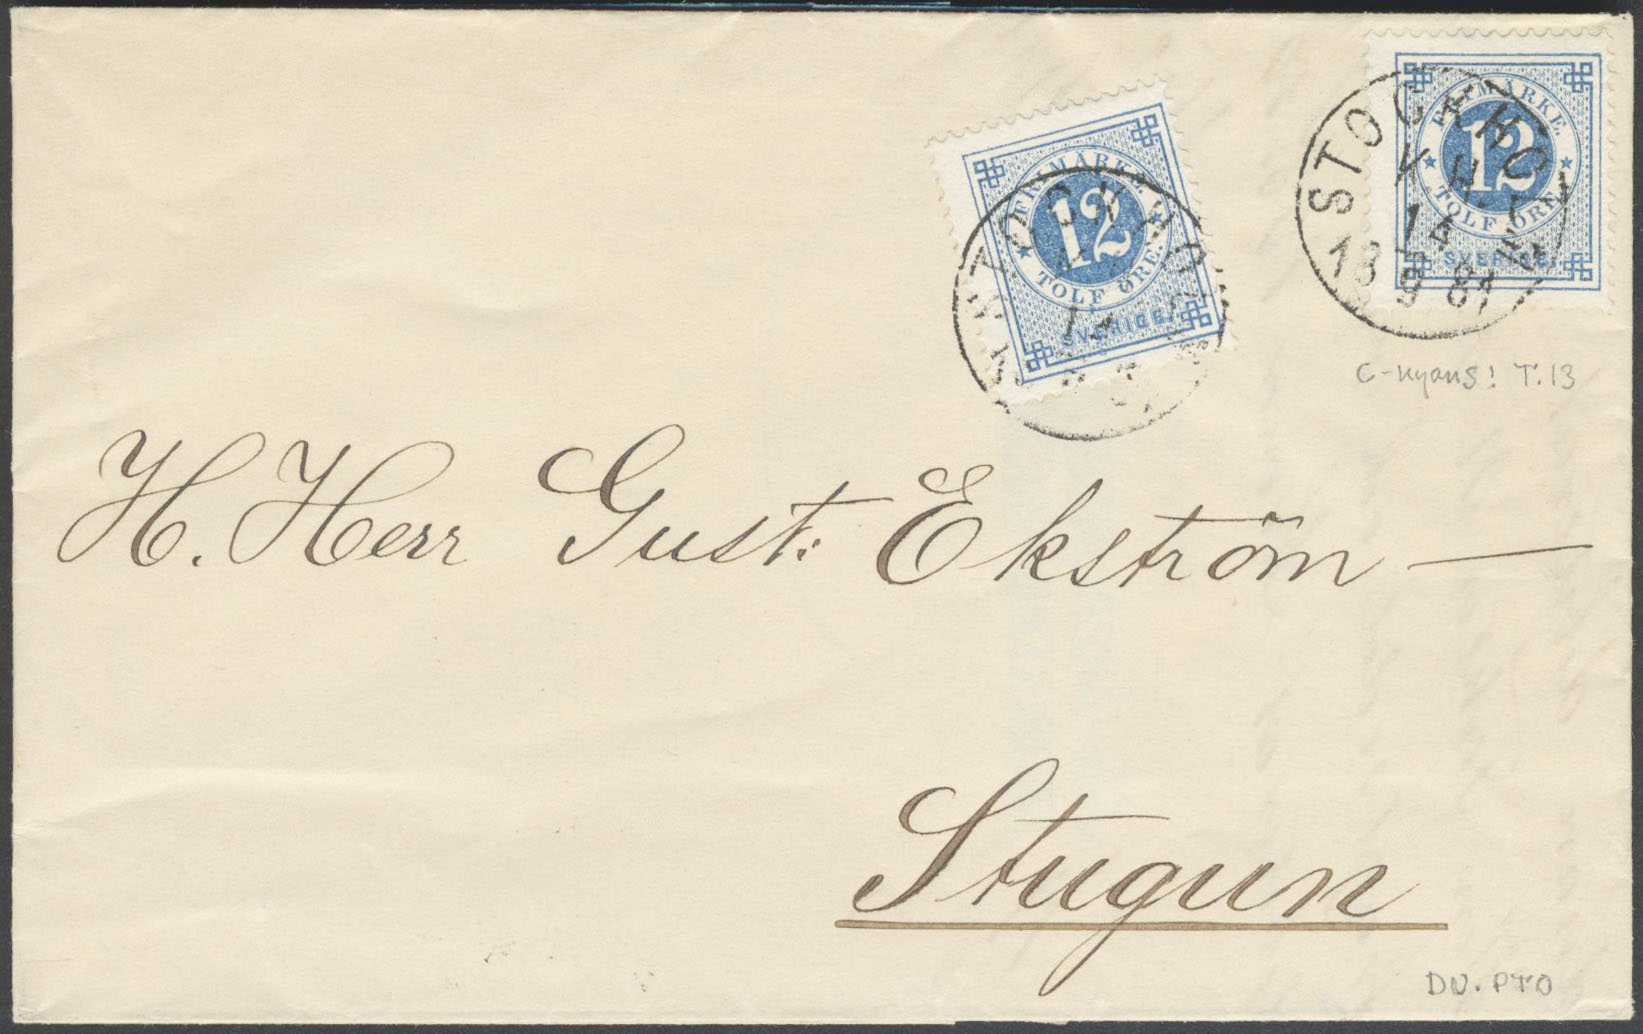 FRIMÄRKE
12
TOLF ÖRE
SVERIGE.
STOCKHOLM
FRIMÄRKE
12
TOLF ÖRE
SVERIGE.
STOCKHOLM
14
18 9 81
C-nyans! T.13
H. Herr Gust: Ekström —
Stugun
DV. PTO